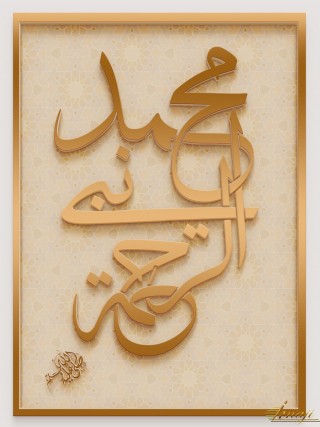 محمد
نبي
الرحمة